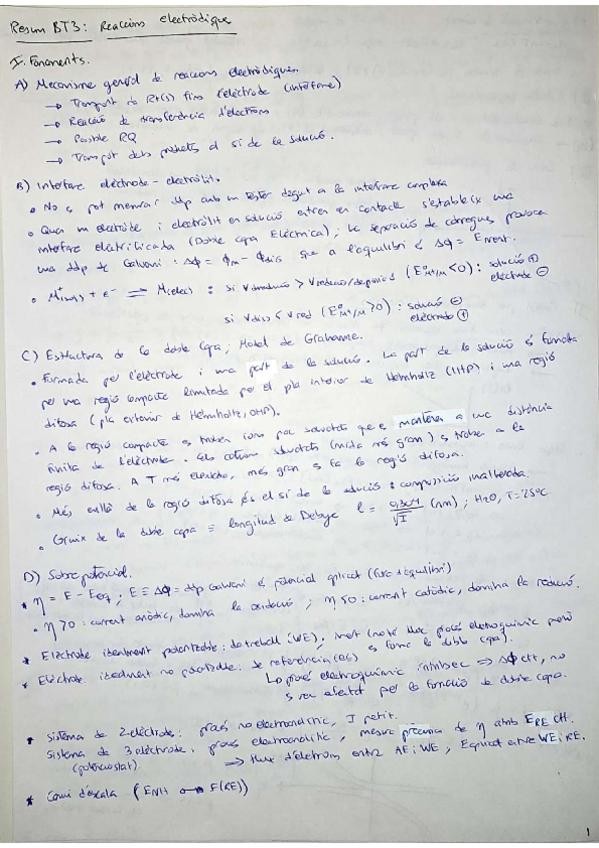 Resum BT3: Reaccions electròdiques
I. Fonaments.
A) Mecanisme general de reaccions electròdiques.
→ Transport de R+(s) fins l'elèctrode (interfase)
→ Reacció de transferència d'electrons
→ Possible RQ
→ Transport dels productes al si de la solució.
B) Interfase elèctrode-electròlit.
• No es pot mesurar ddp amb un tester degut a la interfase complexa
• Quan un elèctrode i electròlit en solució entren en contacte s'estableix una
interfase electrificada (Doble Capa Elèctrica); la separació de càrregues provoca
una ddp de Galvani: Δϕ = ϕM - ϕdis que a l'equilibri é Δϕ = Enernst.
• M+ + e- ⇌ M : si Vdissolució > Vreducció/deposició (E°M+/M < 0): solució ⊕
elèctrode ⊖
si Vdiss < Vred (E°M+/M > 0): solució ⊖
elèctrode ⊕
C) Estructura de la doble capa; Model de Grahame.
• Formada per l'elèctrode i una part de la solució. La part de la solució és formada
per una regió compacta limitada per el pla interior de Helmholtz (IHP) i una regió
difosa (pla exterior de Helmholtz, OHP).
• A la regió compacta es troben ions poc solvatats que es mantenen a una distància
finita de l'elèctrode. Els cations solvatats (mida més gran) es troben a la
regió difosa. A T més elevada, més gran es fa la regió difosa.
• Més enllà de la regió difosa és el si de la solució: composició inalterada.
• Gruix de la doble capa ≡ longitud de Debye ℓ = 0,304/√I (nm); H2O, T=25°C
D) Sobrepotencial.
• η = E - Eeq; E ≡ Δϕ = ddp Galvani é potencial aplicat (fora d'equilibri)
• η > 0: corrent anòdic, domina la oxidació; η < 0: corrent catòdic, domina la reducció.
* Elèctrode idealment polaritzable: de treball (WE), inert (no té lloc procés electroquímic però
es forma la doble capa).
* Elèctrode idealment no polaritzable: de referència (RE)
Lo procés electroquímic intrínsec ⇒ Δϕ ctt, no
es veu afectat per la formació de doble capa.
* Sistema de 2 elèctrode: procés no electroanalític, I petit.
Sistema de 3 elèctrode: procés electroanalític, mesura precisa de η amb ERE ctt.
(potenciostat) → flux d'electrons entre AE i WE; Eaplicat entre WE i RE.
* Canvi d'escala (ENH → E(RE))
1